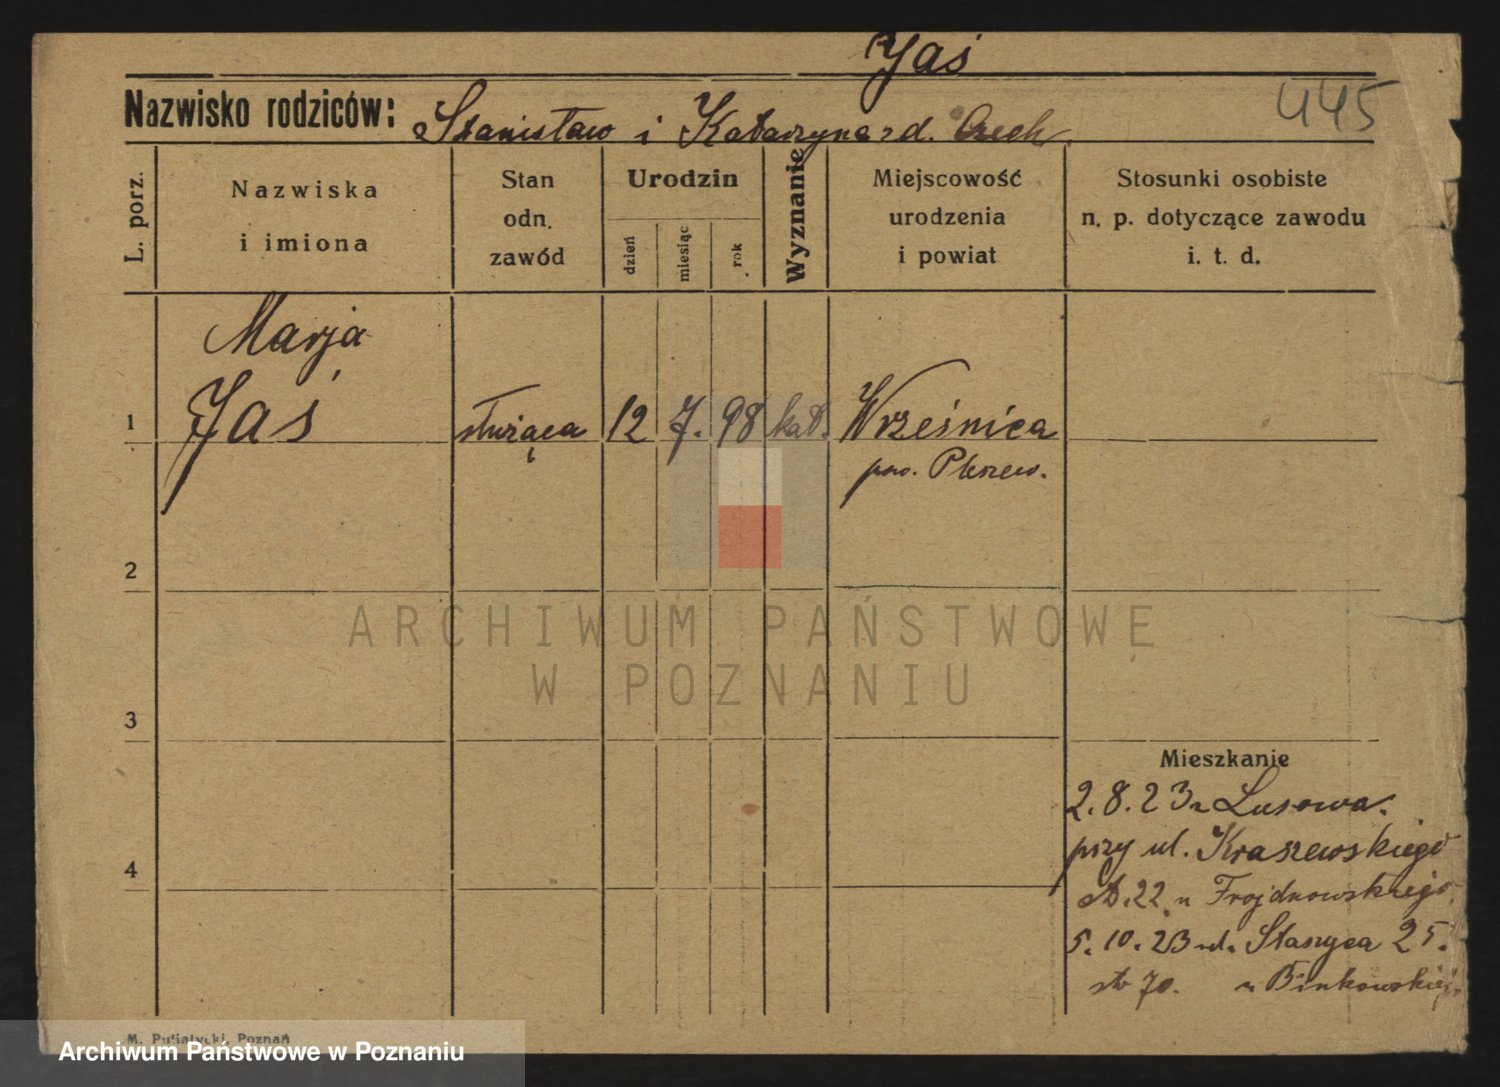 Jaś
445
Nazwisko rodziców: Stanisław i Katarzyna z d. Czech.
L. porz.
Nazwiska
i imiona
Stan
odn.
zawód
Urodzin
dzień
miesiąc
rok
Wyznanie
Miejscowość
urodzenia
i powiat
Stosunki osobiste
n. p. dotyczące zawodu
i. t. d.
Marja
1 Jaś służąca 12 7. 98 kat. Wrześnica
pow. Pleszew.
2
3
4
Mieszkanie
2.8.23 z Lusowa.
przy ul. Kraszewskiego
22 u
5.10.23 ul. Staszyca 25.
70. u Binkowskiej
ARCHIWUM PAŃSTWOWE
W POZNANIU
M. Putiatycki, Poznań
Archiwum Państwowe w Poznaniu